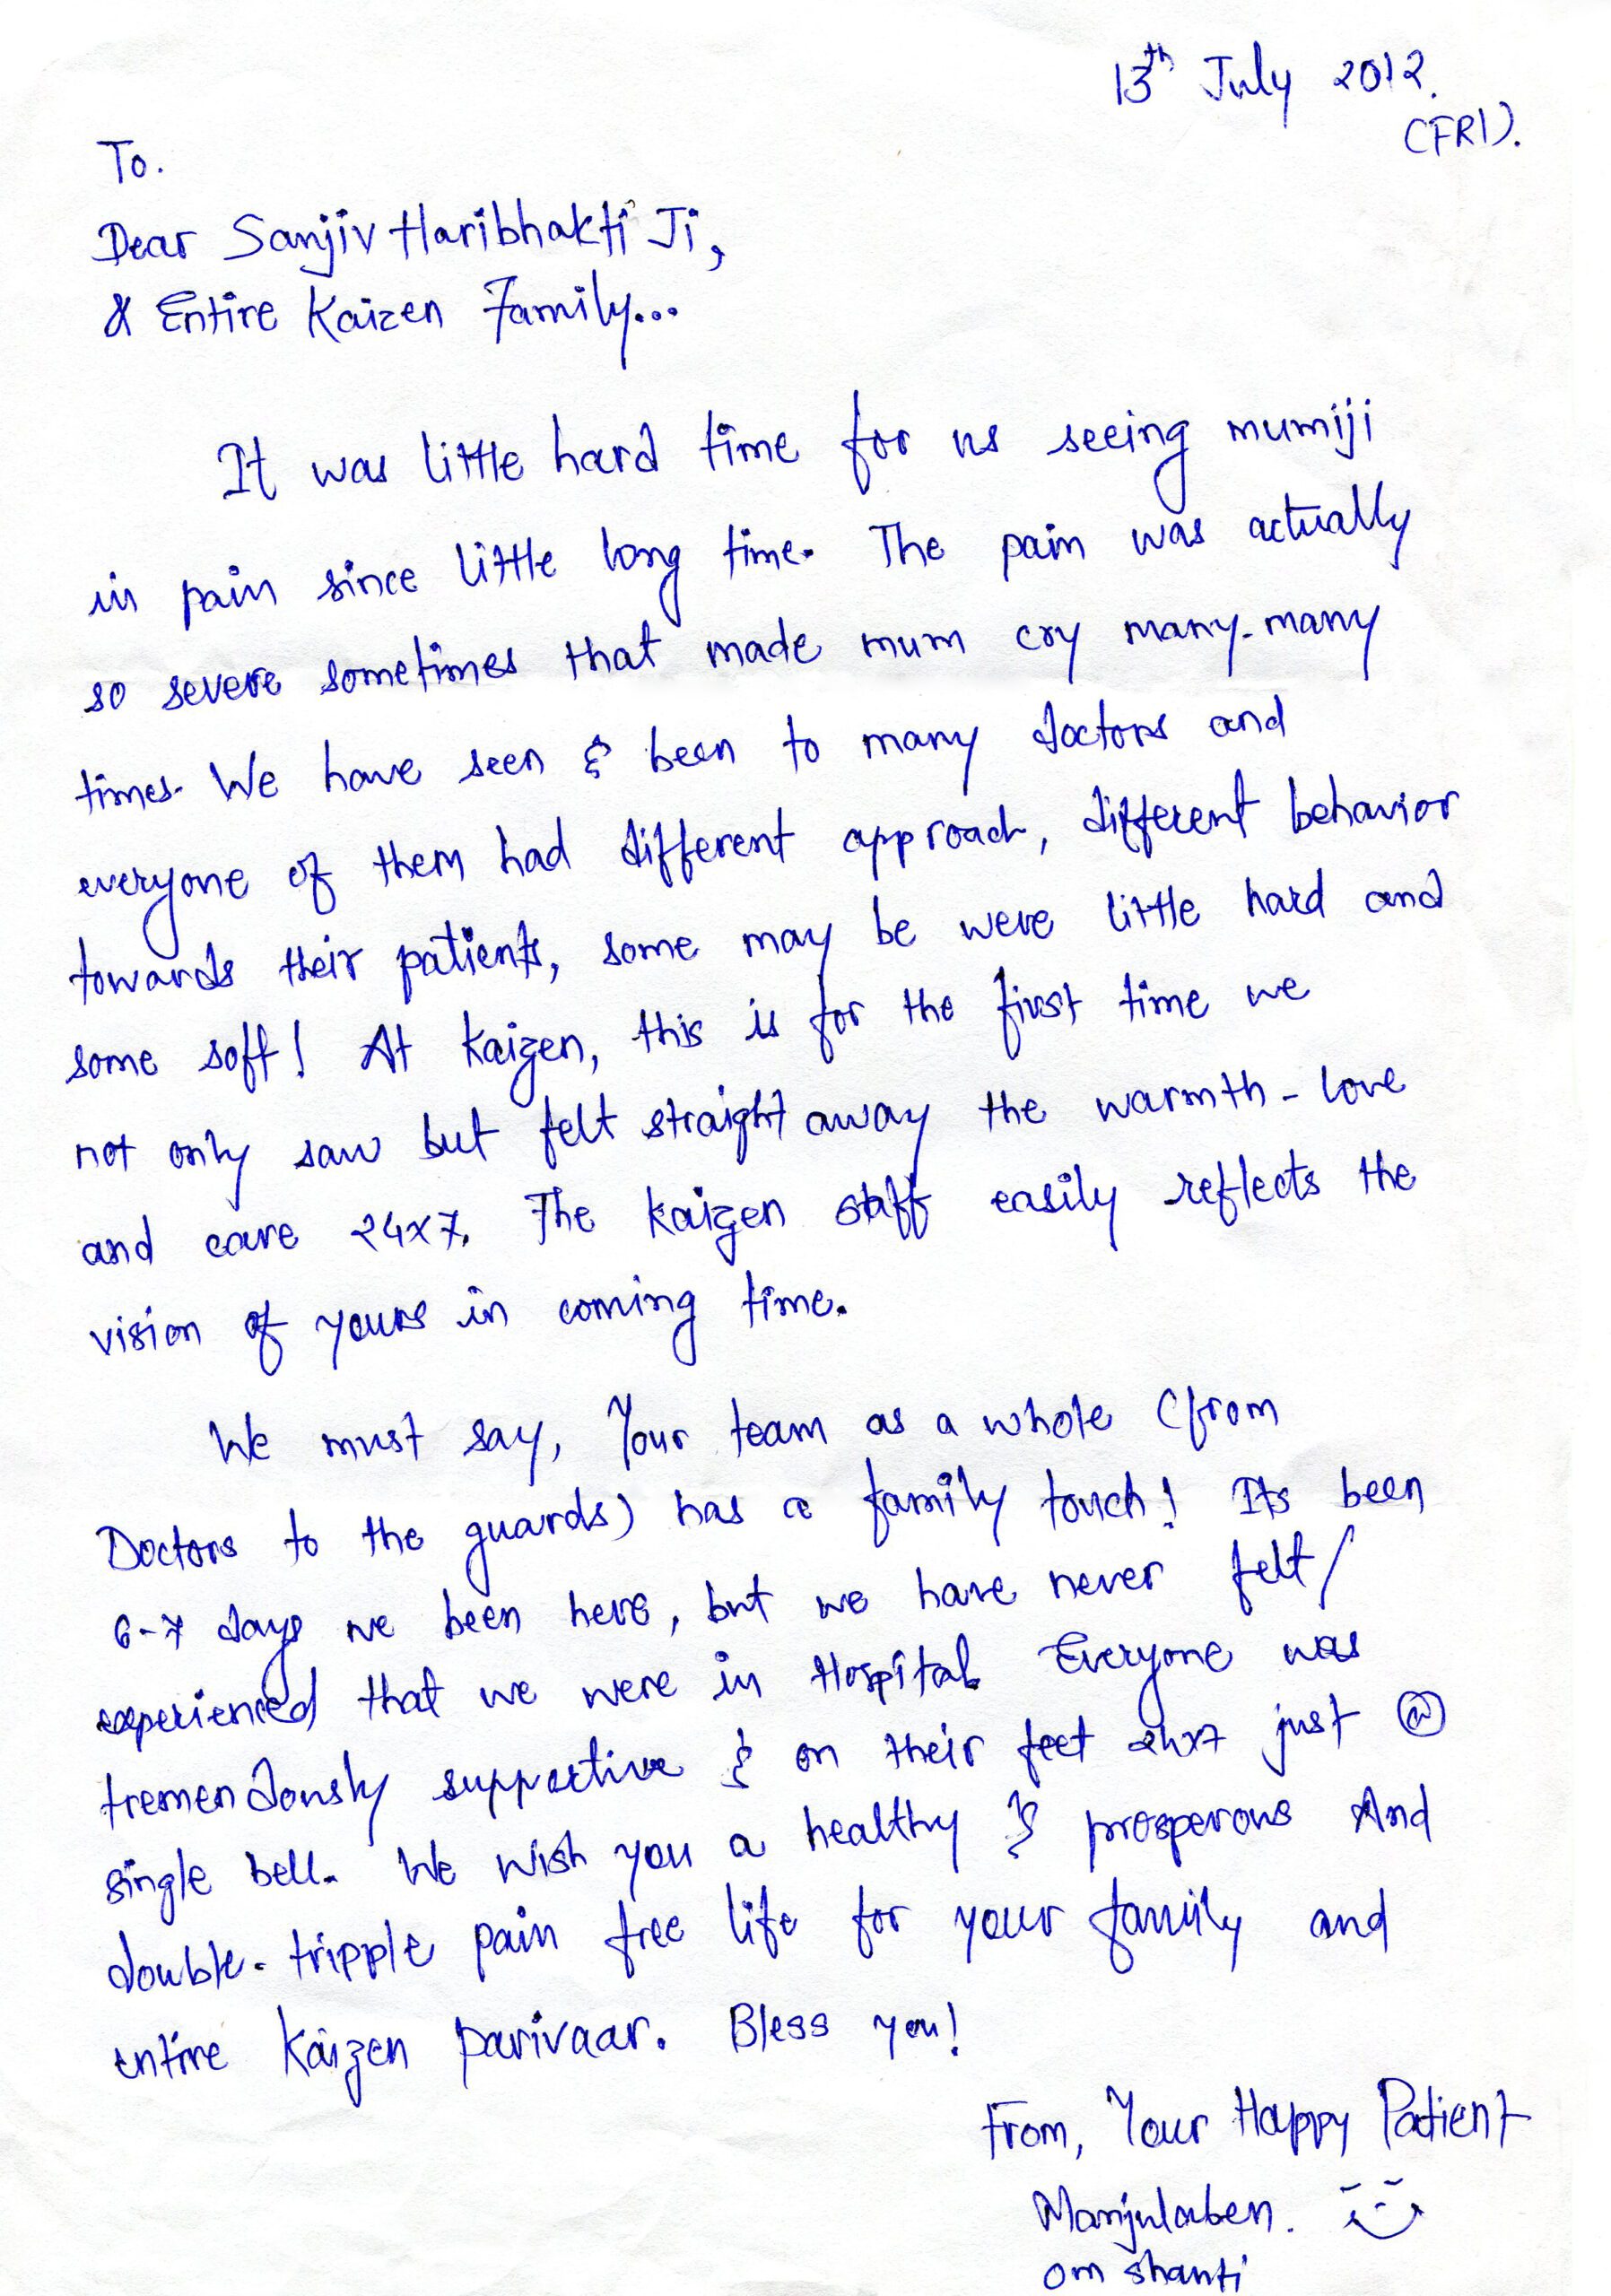 13th July 2012.
(FRI).
To.
Dear Sanjiv Haribhakti Ji,
& Entire Kaizen Family...
It was little hard time for us seeing mumiji
in pain since little long time. The pain was actually
so severe sometimes that made mum cry many-many
times. We have seen & been to many doctors and
everyone of them had different approach, different behavior
towards their patients, some may be were little hard and
some soft! At Kaizen, this is for the first time we
not only saw but felt straight away the warmth - love
and care 24x7. The Kaizen staff easily reflects the
vision of yours in coming time.
We must say, Your team as a whole (from
Doctors to the guards) has a family touch! Its been
6-7 days we been here, but we have never felt/
experienced that we were in Hospital. Everyone was
tremendously supportive & on their feet 24x7 just @
single bell. We wish you a healthy & prosperous And
double-tripple pain free life for your family and
entire Kaizen Parivaar. Bless you!
From, Your Happy Patient
Manjulaben.
om shanti